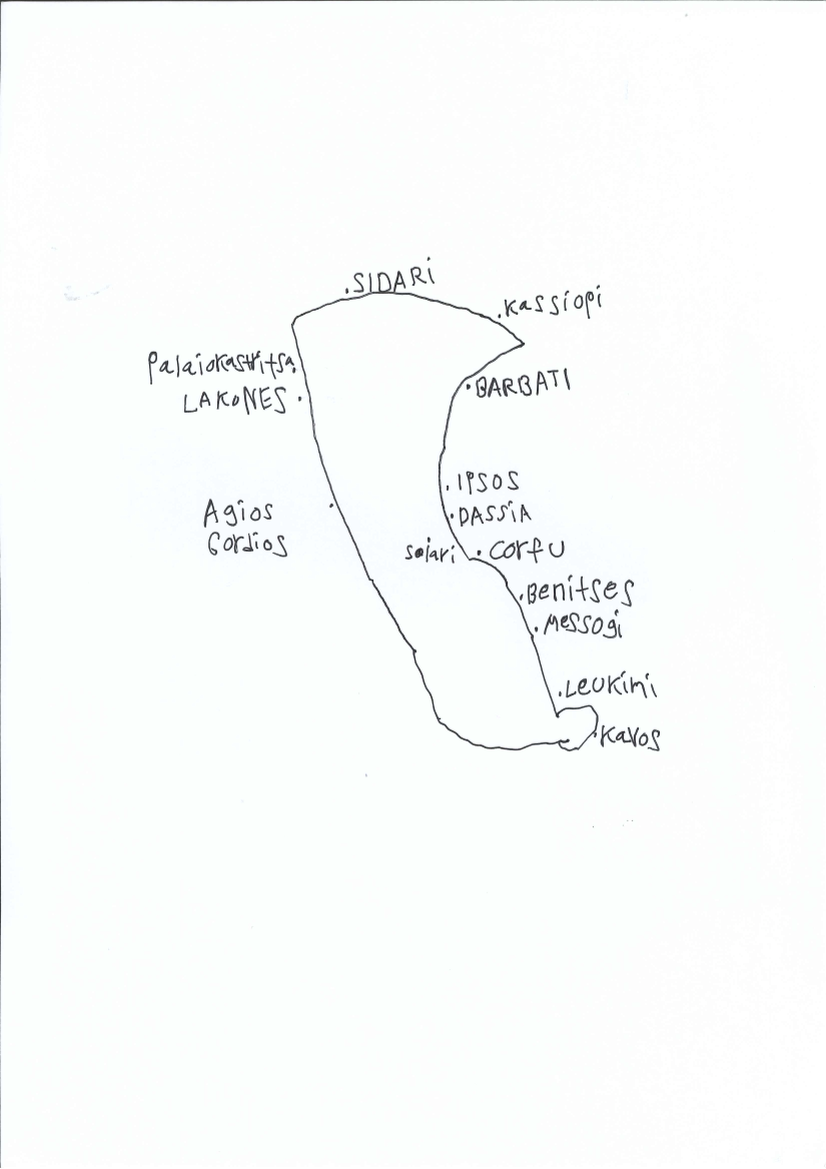 SIDARi
Kassiopi
Palaiokastritsa
LAKONES
BARBATI
IPSOS
DASSiA
Agios
Gordios
Corfu
Benitses
Messogi
Leukimi
Kavos